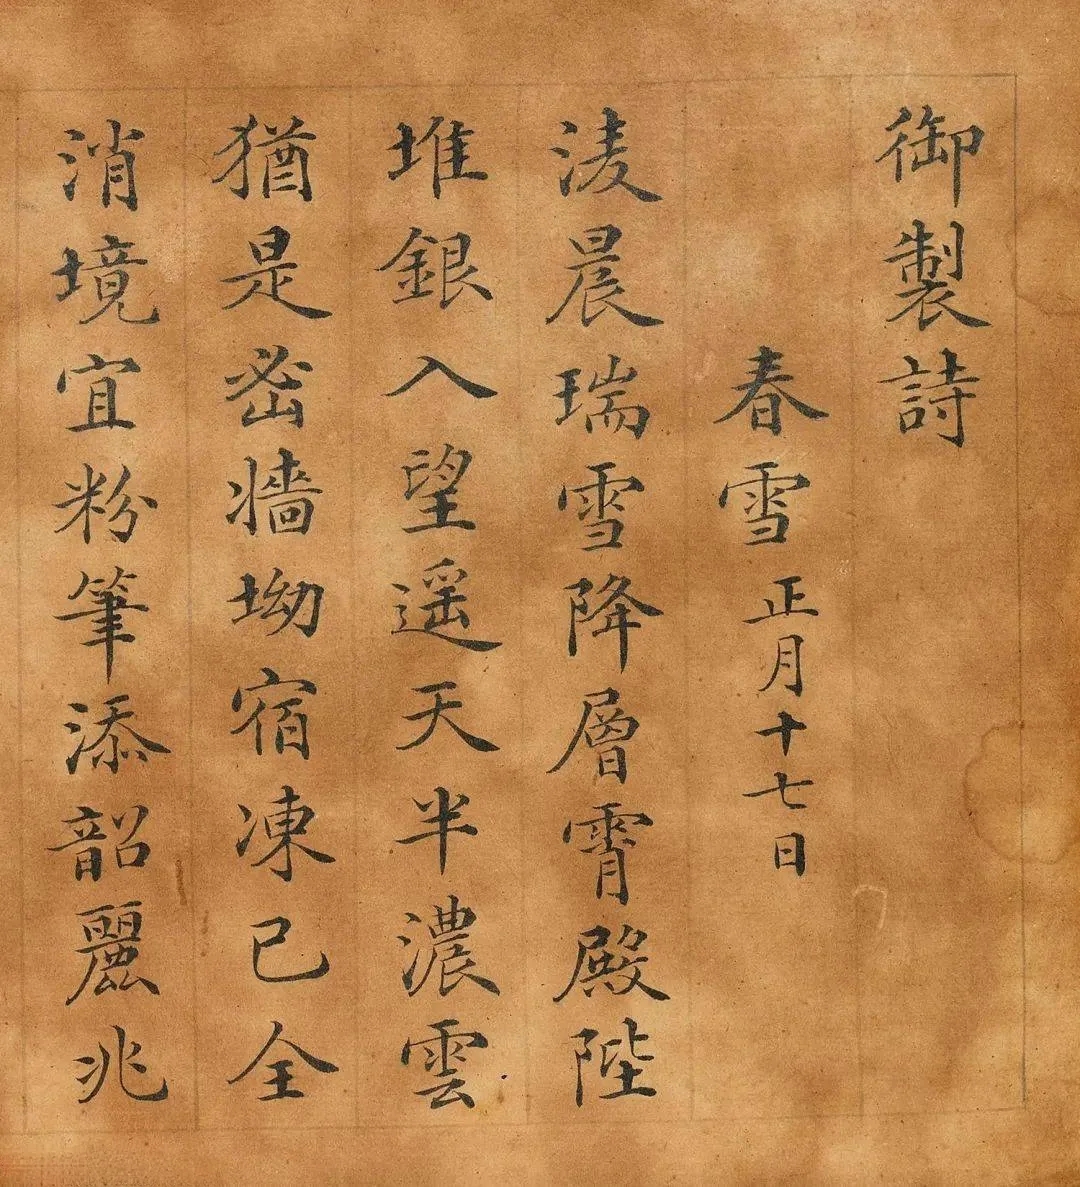 御製詩
春雪 正月十七日
淩晨瑞雪降層霄殿陛
堆銀入望遥天半濃雲
猶是密牆坳宿凍已全
消境宜粉筆添韶麗兆